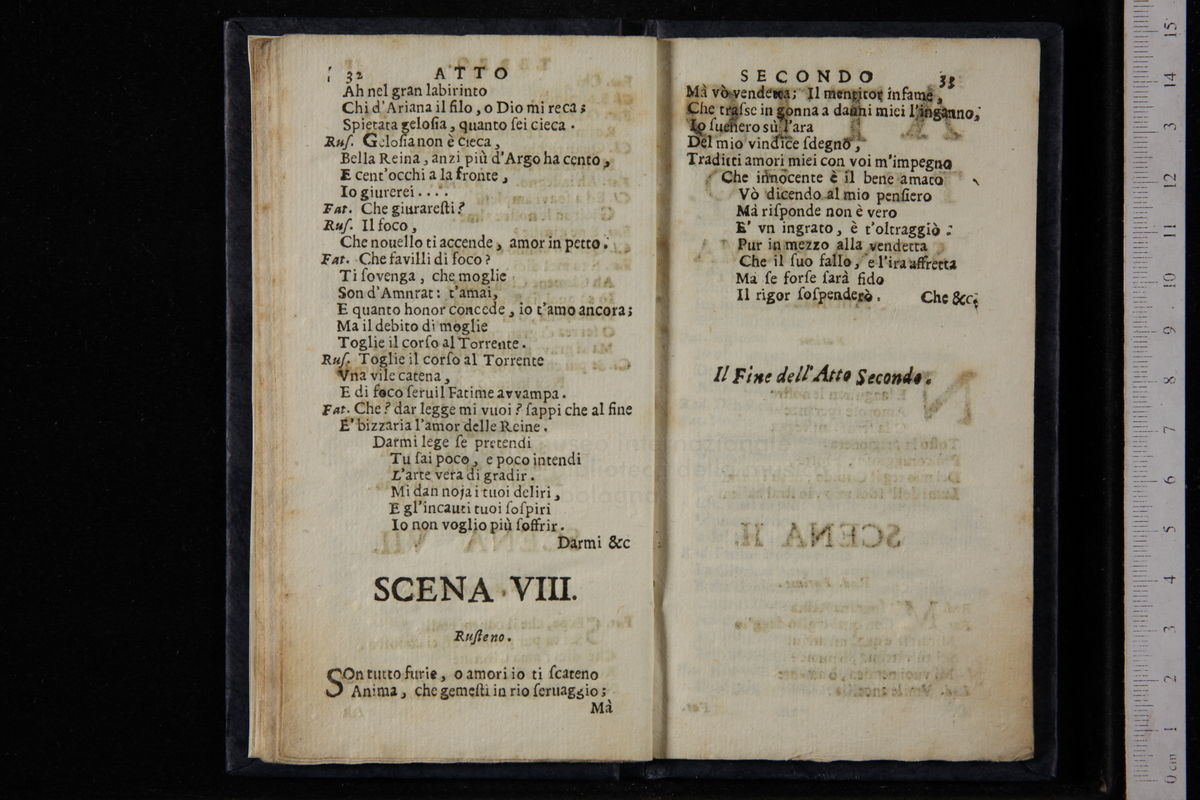 32 ATTO
Ah nel gran labirinto
Chi d'Ariana il filo, o Dio mi reca;
Spietata gelosia, quanto sei cieca.
Ruſ. Gelosia non è cieca,
Bella Reina, anzi più d'Argo ha cento,
E cent'occhi a la fronte,
Io giurerei....
Fat. Che giuraresti?
Ruſ. Il foco,
Che nouello ti accende, amor in petto.
Fat. Che favilli di foco?
Ti ſovenga, che moglie
Son d'Amnrat: t'amai,
E quanto honor concede, io t'amo ancora;
Ma il debito di moglie
Toglie il corſo al Torrente.
Ruſ. Toglie il corſo al Torrente
Vna vile catena,
E di foco ſeruil Fatime avvampa.
Fat. Che? dar legge mi vuoi? ſappi che al fine
E' bizzaria l'amor delle Reine.
Darmi lege ſe pretendi
Tu ſai poco, e poco intendi
L'arte vera di gradir.
Mi dan noja i tuoi deliri,
E gl'incauti tuoi ſoſpiri
Io non voglio più ſoffrir.
Darmi &c
SCENA VIII.
Ruſteno.
SOn tutto furie, o amori io ti ſcateno
Anima, che gemeſti in rio ſeruaggio;
Mà
SECONDO 33
Mà vò vendetta; Il mentitor infame,
Che traſse in gonna a danni miei l'inganno,
Io ſuenero sù l'ara
Del mio vindice ſdegno,
Traditti amori miei con voi m'impegno
Che innocente è il bene amato
Vò dicendo al mio penſiero
Mà riſponde non è vero
E' vn ingrato, è t'oltraggiò:
Pur in mezzo alla vendetta
Che il ſuo fallo, e l'ira affretta
Ma ſe forſe ſarà fido
Il rigor ſoſpenderò. Che &c.
Il Fine dell'Atto Secondo.
0 cm 1 2 3 4 5 6 7 8 9 10 11 12 13 14 15